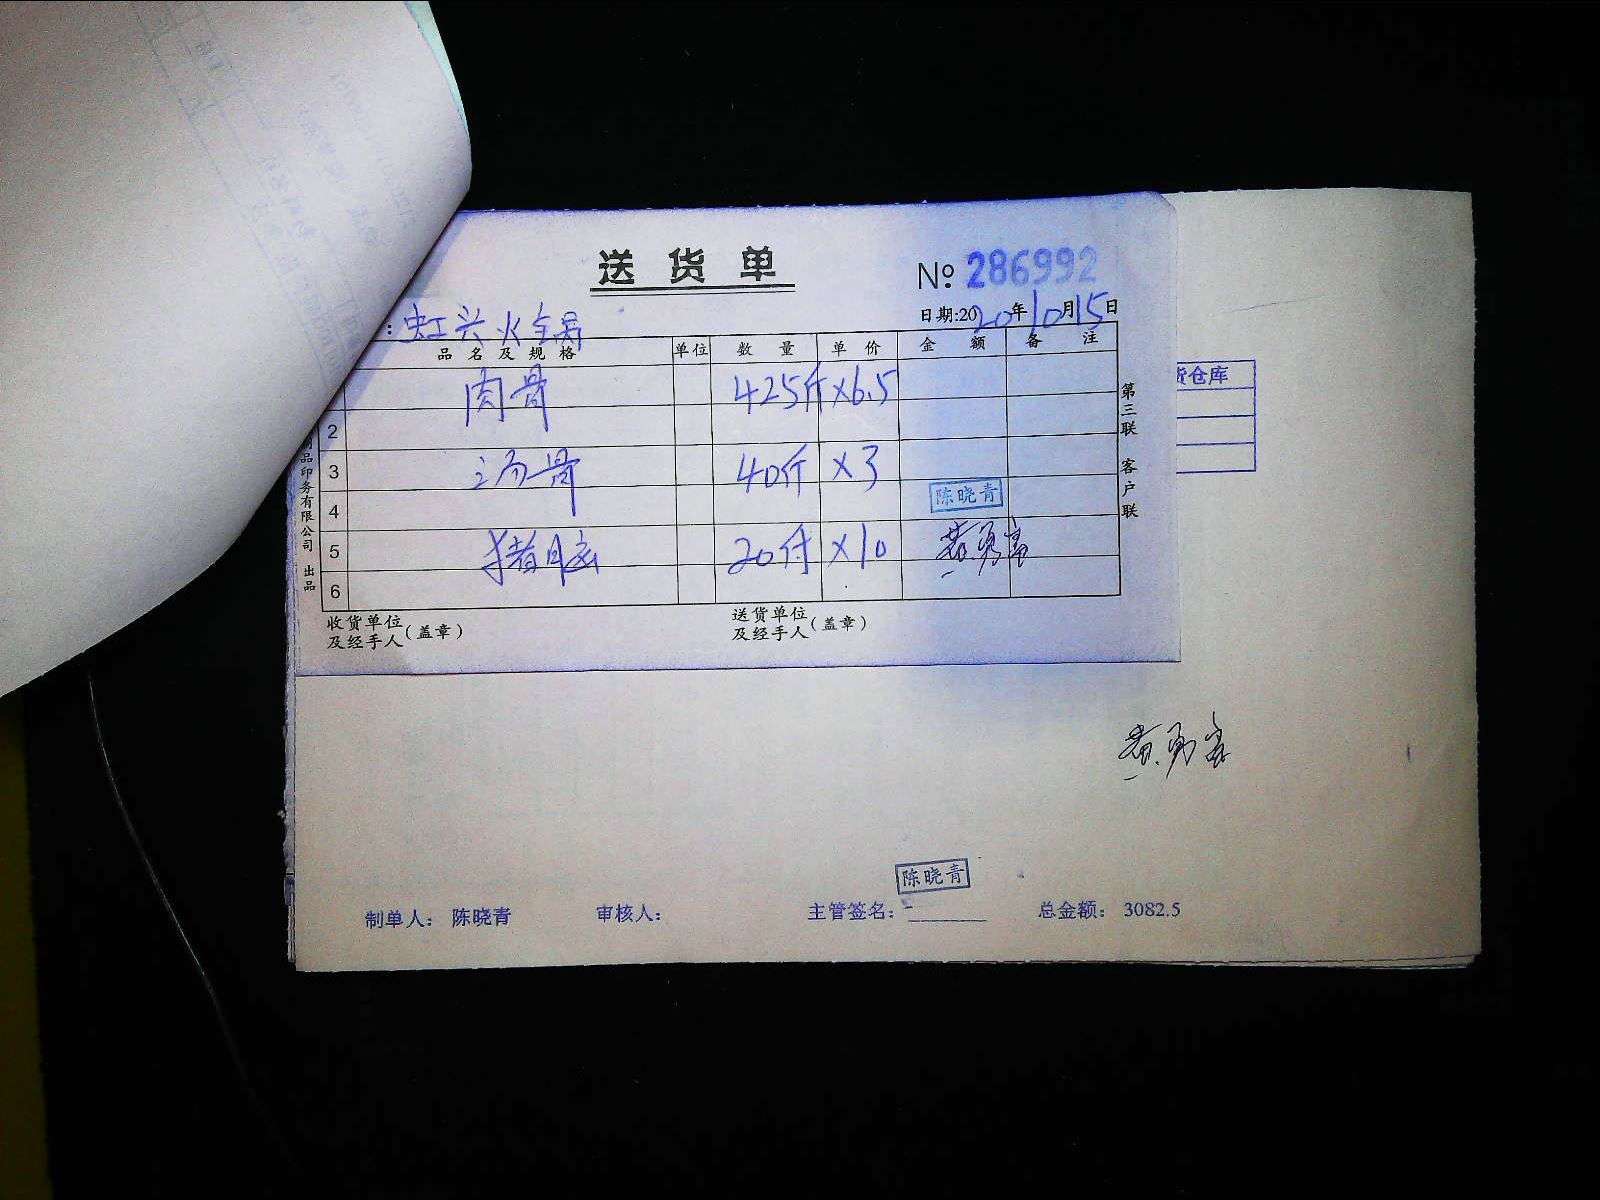 送货单
№ 286992
:虹兴火锅
日期:2020年10月15日
品名及规格 单位 数量 单价 金额 备注
肉骨 425斤 ×6.5
2
3 汤骨 40斤 ×3
4 陈晓青
5 猪脑 20付 ×10
6
收货单位及经手人(盖章)
送货单位及经手人(盖章)
品印务有限公司 出品
第三联 客户联
货仓库
陈晓青
制单人: 陈晓青 审核人: 主管签名: 总金额: 3082.5